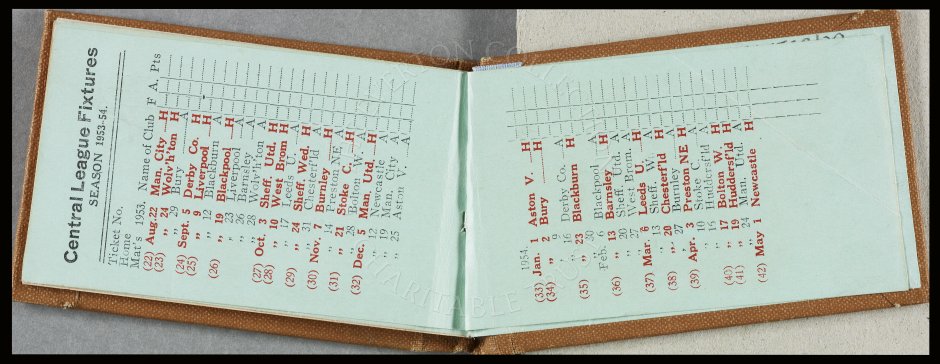 Central League Fixtures
SEASON 1953-54.
Ticket No.
Home
Mat's 1953. Name of Club F A. Pts
(22) Aug. 22 Man. City ... H
(23) ,, 24 Wolv'h'ton H
,, 29 Bury ... A
(24) Sept. 5 Derby Co. H
(25) ,, 9 Liverpool H
,, 12 Blackburn A
(26) ,, 19 Blackpool H
,, 23 Liverpool A
,, 26 Barnsley A
,, 28 Wolv'h'ton A
(27) Oct. 3 Sheff. Utd. H
(28) ,, 10 West Brom H
,, 17 Leeds U. A
(29) ,, 24 Sheff Wed. H
,, 31 Chesterf'ld A
(30) Nov. 7 Burnley ... H
,, 14 Preston NE A
(31) ,, 21 Stoke C. ... H
,, 28 Bolton W. A
(32) Dec. 5 Man. Utd. H
,, 12 Newcastle A
,, 19 Man. City A
,, 25 Aston V. ... A
1954.
(33) Jan. 1 Aston V. ... H
(34) ,, 2 Bury ... H
,, 9
,, 16 Derby Co. ... A
(35) ,, 23 Blackburn H
,, 30
Feb. 6 Blackpool A
(36) ,, 13 Barnsley ... H
,, 20 Sheff. Utd. A
,, 27 West Brom. A
(37) Mar. 6 Leeds U. ... H
,, 13 Sheff. W. A
(38) ,, 20 Chesterf'ld H
,, 27 Burnley ... A
(39) Apr. 3 Preston NE H
,, 10 Stoke C. ... A
,, 16 Huddersf'ld A
(40) ,, 17 Bolton W. H
(41) ,, 19 Huddersf'ld H
,, 24 Man. Utd. A
(42) May 1 Newcastle H